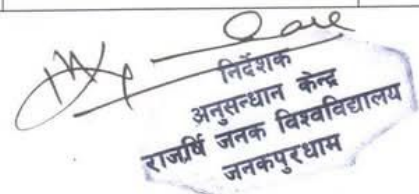 निर्देशक
अनुसन्धान केन्द्र
राजर्षि जनक विश्वविद्यालय
जनकपुरधाम